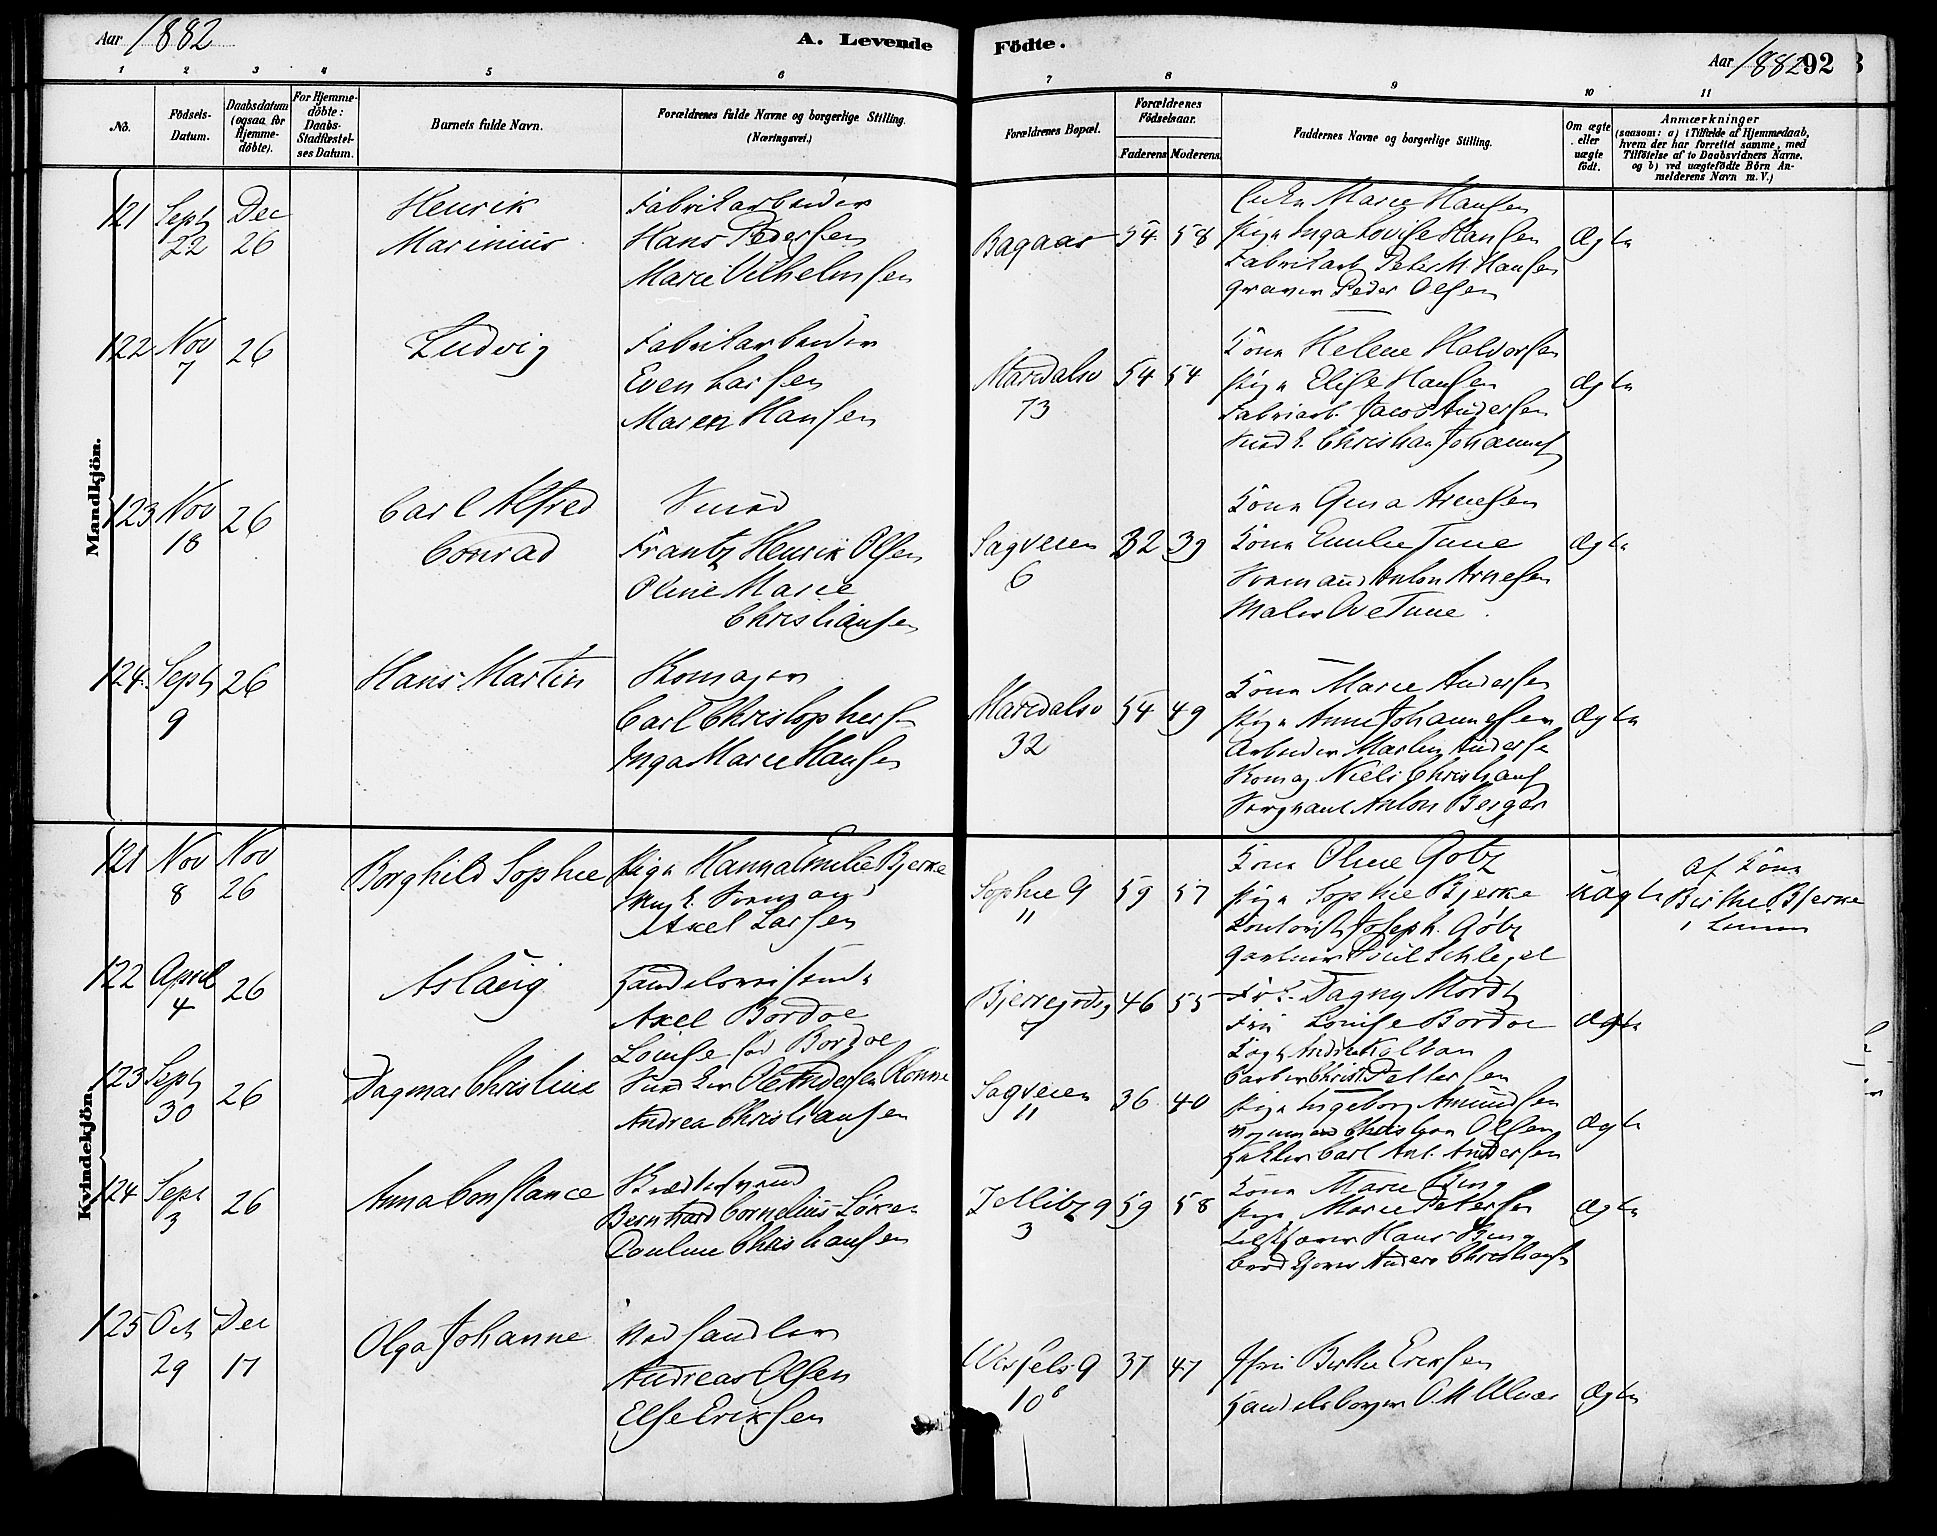 Aar 1882
A. Levende
Födte.
Aar 1882
92
1 2 3 4 5 6 7 8 9 10 11
No.
Födsels-
Datum.
Daabsdatum
(ogsaa for
Hjemme-
döbte).
For Hjemme-
döbte:
Daabs-
Stadfæstel-
ses Datum.
Barnets fulde Navn.
Forældrenes fulde Navne og borgerlige Stilling.
(Næringsvei.)
Forældrenes Bopæl.
Forældrenes
Födselsaar.
Faderens
Moderens.
Faddernes Navne og borgerlige Stilling.
Om ægte
eller
uægte
født.
Anmærkninger
(saasom: a) i Tilfælde af Hjemmedaab,
hvem der har forrettet samme, med
Tilföielse af to Daabsvidners Navne.
og b) ved uægtefödte Börn An-
melderens Navn m. V.)
Mandkjön.
121 Sept 22 Dec 26
Henrik
Marinius
Fabrikarbeider
Hans Pedersen
Marie Vilhelmsen
Bagaas 54 58
Enke Marie Hansen
Pige Inga Lovise Hansen
Fabrikarb Peter M. Hansen
Graver Peder Olsen
Ægte
122 Nov 7 26
Ludvig
Fabrikarbeider
Even Larsen
Maren Hansen
Maridalsv
73
54 54
Kone Helene Halvorsen
Pige Elise Hansen
Fabriarb. Jacob Andersen
Smed Christian Johannes
Ægte
123 Nov 18 26
Carl Alfred
Conrad
Smed
Frantz Henrik Olsen
Oline Marie
Christiansen
Sagveien
6
32 39
Kone Gina Arnesen
Kone Emilie Tune
Formand Anton Arnesen
Maler Ove Tune.
Ægte
124. Sept 9 26
Hans Martin
Skomager
Carl Christophers
Inga Marie Hansen
Maridalsv
32
54 49
Kone Marie Andersen
Pige Anne Johannesen
Arbeider Martin Anderse
Skomag Niels Christians
Sergeant Anton Berger
Ægte
Kvindekjön.
121 Nov 8 Nov 26
Borghild Sophie
Pige Hanna Emilie Bjerke
Axel Larsen
Sophie G
11
59 57
Kone Oline Gotz
Pige Sophie Bjerke
Joseph. Götz
Gartner Paul Schlegel
uægte
af Kone
Birthe Bjerke
122 April 4 26
Aslaug
Handelsreisende
Axel Bordoe
Louise fød Bordoe
Bjerregrdsg
7
46 55
Frk. Dagny Mordt
Fru Louise Bordoe
Ægte
123 Sept 30 26
Dagmar Christine
Ole Andersen Rønne
Andrea Christiansen
Sagveien
11
36 40
Pige Ingeborg Amundsen
Christian Olsen
Carl Ant. Andersen
Ægte
124 Sept 3 26
Anna Constance
Bernhard Cornelius Löken
Pauline Christiansen
Tellitz g
3
59 58
Kone Marie Ring
Pige Marie Petersen
Hans Ring
Anders Christians
Ægte
125 Oct 29 Dec 17
Olga Johanne
Vedhandler
Andreas Olsen
Else Eriksen
Wessels G
10b
37 47
Fru Birthe Eriksen
Handelsborger
Ægte